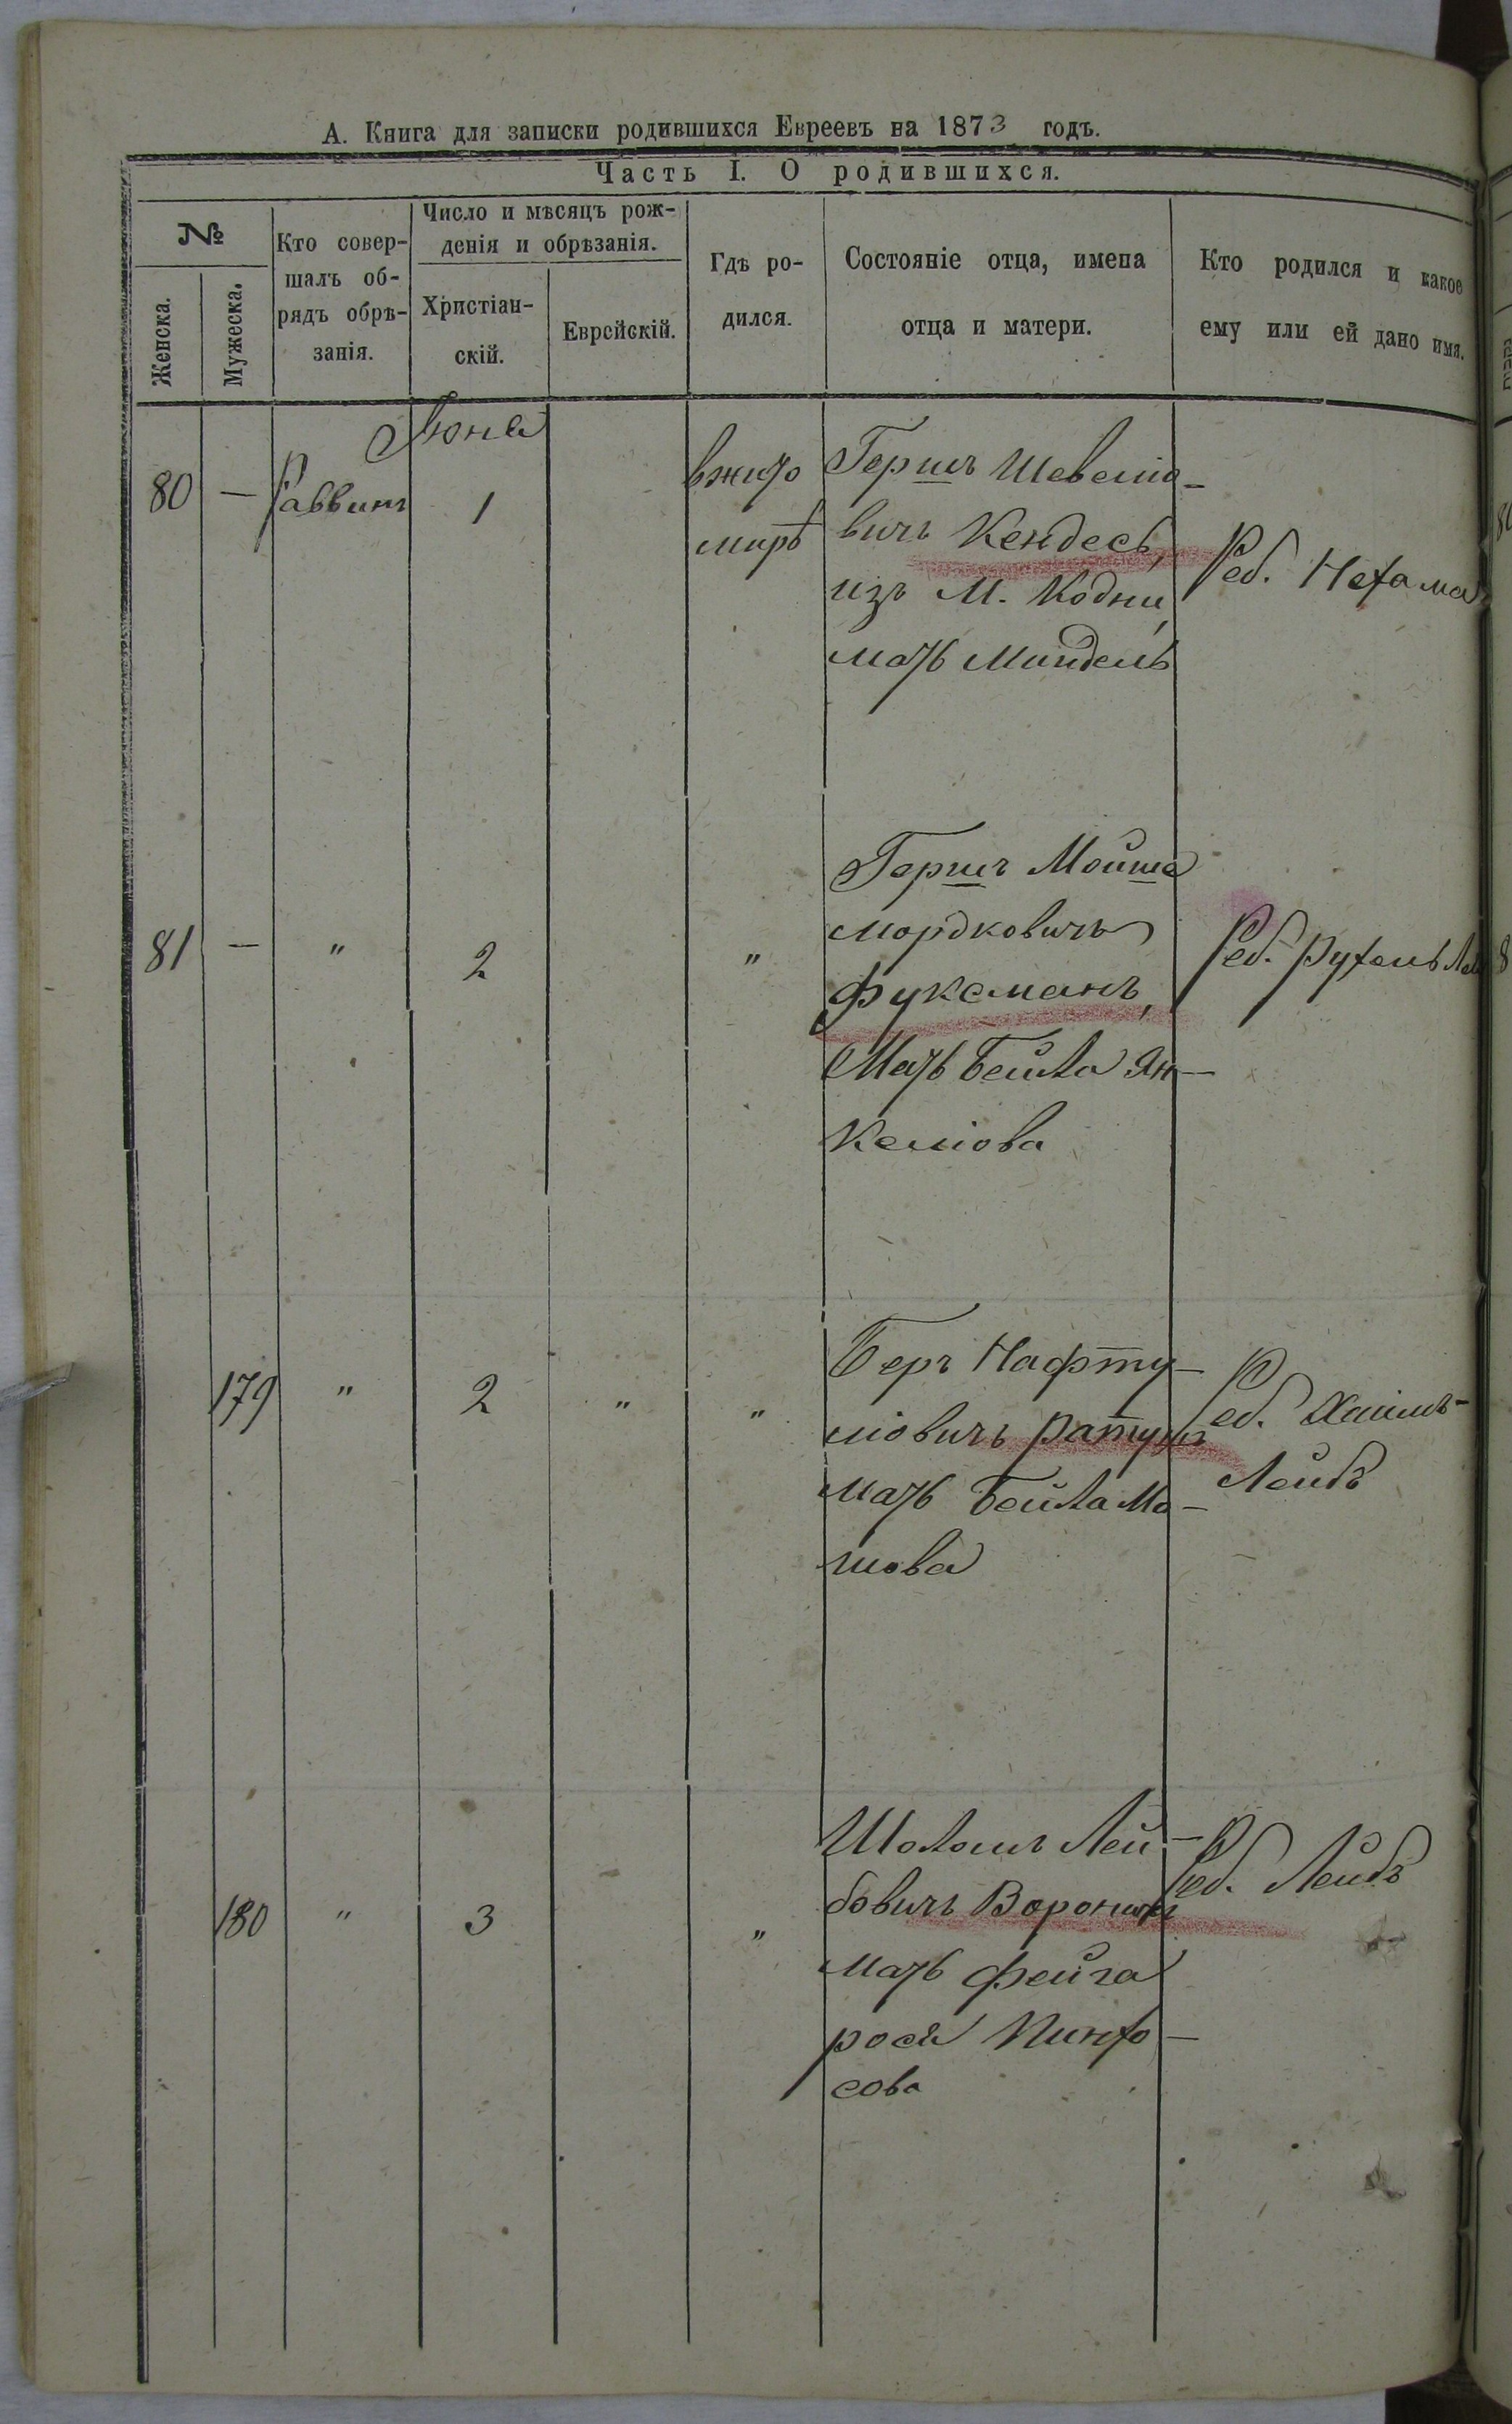 А. Книга для записки родившихся Евреевъ на 1873 годъ.
Часть I. О родившихся.
№
Женска.
Мужеска.
Кто совер-
шалъ об-
рядъ обрѣ-
занія.
Число и мѣсяцъ рож-
денія и обрѣзанія.
Христіан-
скій.
Еврейскій.
Гдѣ ро-
дился.
Состояніе отца, имена
отца и матери.
Кто родился и какое
ему или ей дано имя.
Іюня
80 — Раввинъ 1
вжито
мирѣ
Гершъ Шевеліо-
вичъ Кендесъ,
изъ М. Кодни,
мать Миндель
Реб. Нехама
81 — " 2 "
Гершъ Мойше
мордковичъ
Фуксманъ,
Мать Бейла Ян-
келіова
Реб. Рухель
179 " 2 " "
Беръ Нафту-
ліовичъ
мать Бейла Мо-
шова
Реб. Хаимъ-
Лейбъ
180 " 3 "
Шоломъ Лей-
бовичъ
мать Фейга
рося Пинхо-
сова
Реб. Лейбъ